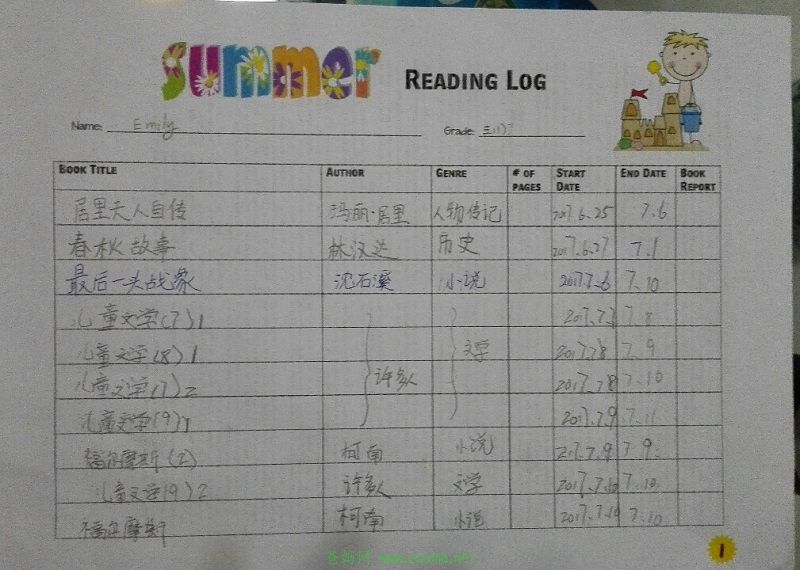 Summer READING LOG
Name: Emily Grade: 三(1)
BOOK TITLE AUTHOR GENRE # OF PAGES START DATE END DATE BOOK REPORT
居里夫人自传 玛丽·居里 人物传记 2017.6.25 7.6
春秋故事 林汉达 历史 2017.6.27 7.1
最后一头战象 沈石溪 小说 2017.7.6 7.10
儿童文学(7)1 2017.7.7 7.8
儿童文学(8)1 文学 2017.7.8 7.9
儿童文学(7)2 许多人 2017.7.8 7.10
儿童文学(9)1 2017.7.9 7.11
福尔摩斯(2) 柯南 小说 2017.7.9 7.9.
儿童文学(9)2 许多人 文学 2017.7.10 7.10.
福尔摩斯 柯南 小说 2017.7.10 7.10
1